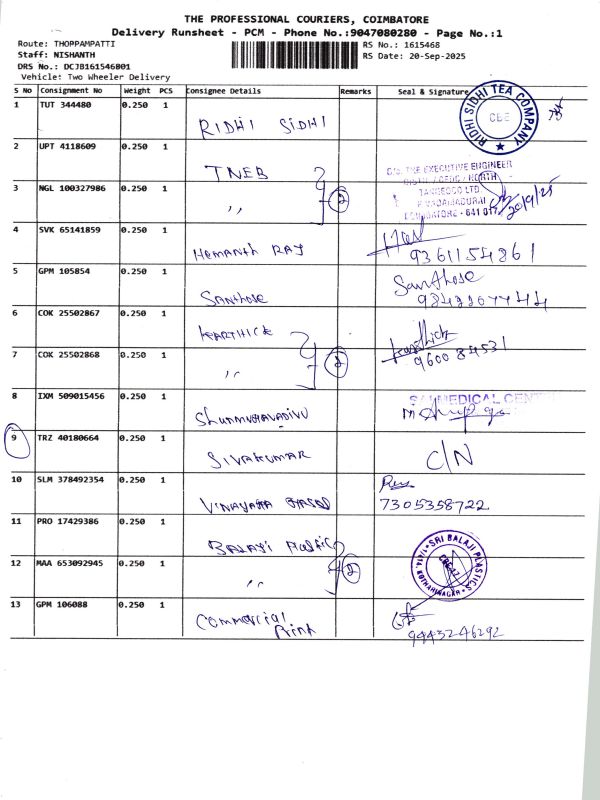 THE PROFESSIONAL COURIERS, COIMBATORE
Delivery Runsheet - PCM - Phone No.:9047080280 - Page No.:1
Route: THOPPAMPATTI
Staff: NISHANTH
DRS No.: DCJB161546801
Vehicle: Two Wheeler Delivery
RS No.: 1615468
RS Date: 20-Sep-2025
S No Consignment No Weight PCS Consignee Details Remarks Seal & Signature
1 TUT 344480 0.250 1 RIDHI SIDHI RIDHI SIDHI TEA COMPANY CBE
2 UPT 4118609 0.250 1 TNEB THE EXECUTIVE ENGINEER
NORTH
TANGEDCO LTD
3 NGL 100327986 0.250 1 ,, 2 COIMBATORE - 641 017 20/9/25
4 SVK 65141859 0.250 1 HEMANTH RAJ 9361154861
5 GPM 105854 0.250 1 SANTHOSE Santhose
6 COK 25502867 0.250 1 KARTHICK Karthick
9600 84531
7 COK 25502868 0.250 1 ,, 2
8 IXM 509015456 0.250 1 MEDICAL
9 TRZ 40180664 0.250 1 SIVAKUMAR C/N
10 SLM 378492354 0.250 1 VINAYAGA 7305358722
11 PRO 17429386 0.250 1 BALAJI PLASTIC SRI BALAJI PLASTICS
12 MAA 653092945 0.250 1 ,, 2
13 GPM 106088 0.250 1 Commercial
Print 9443246292